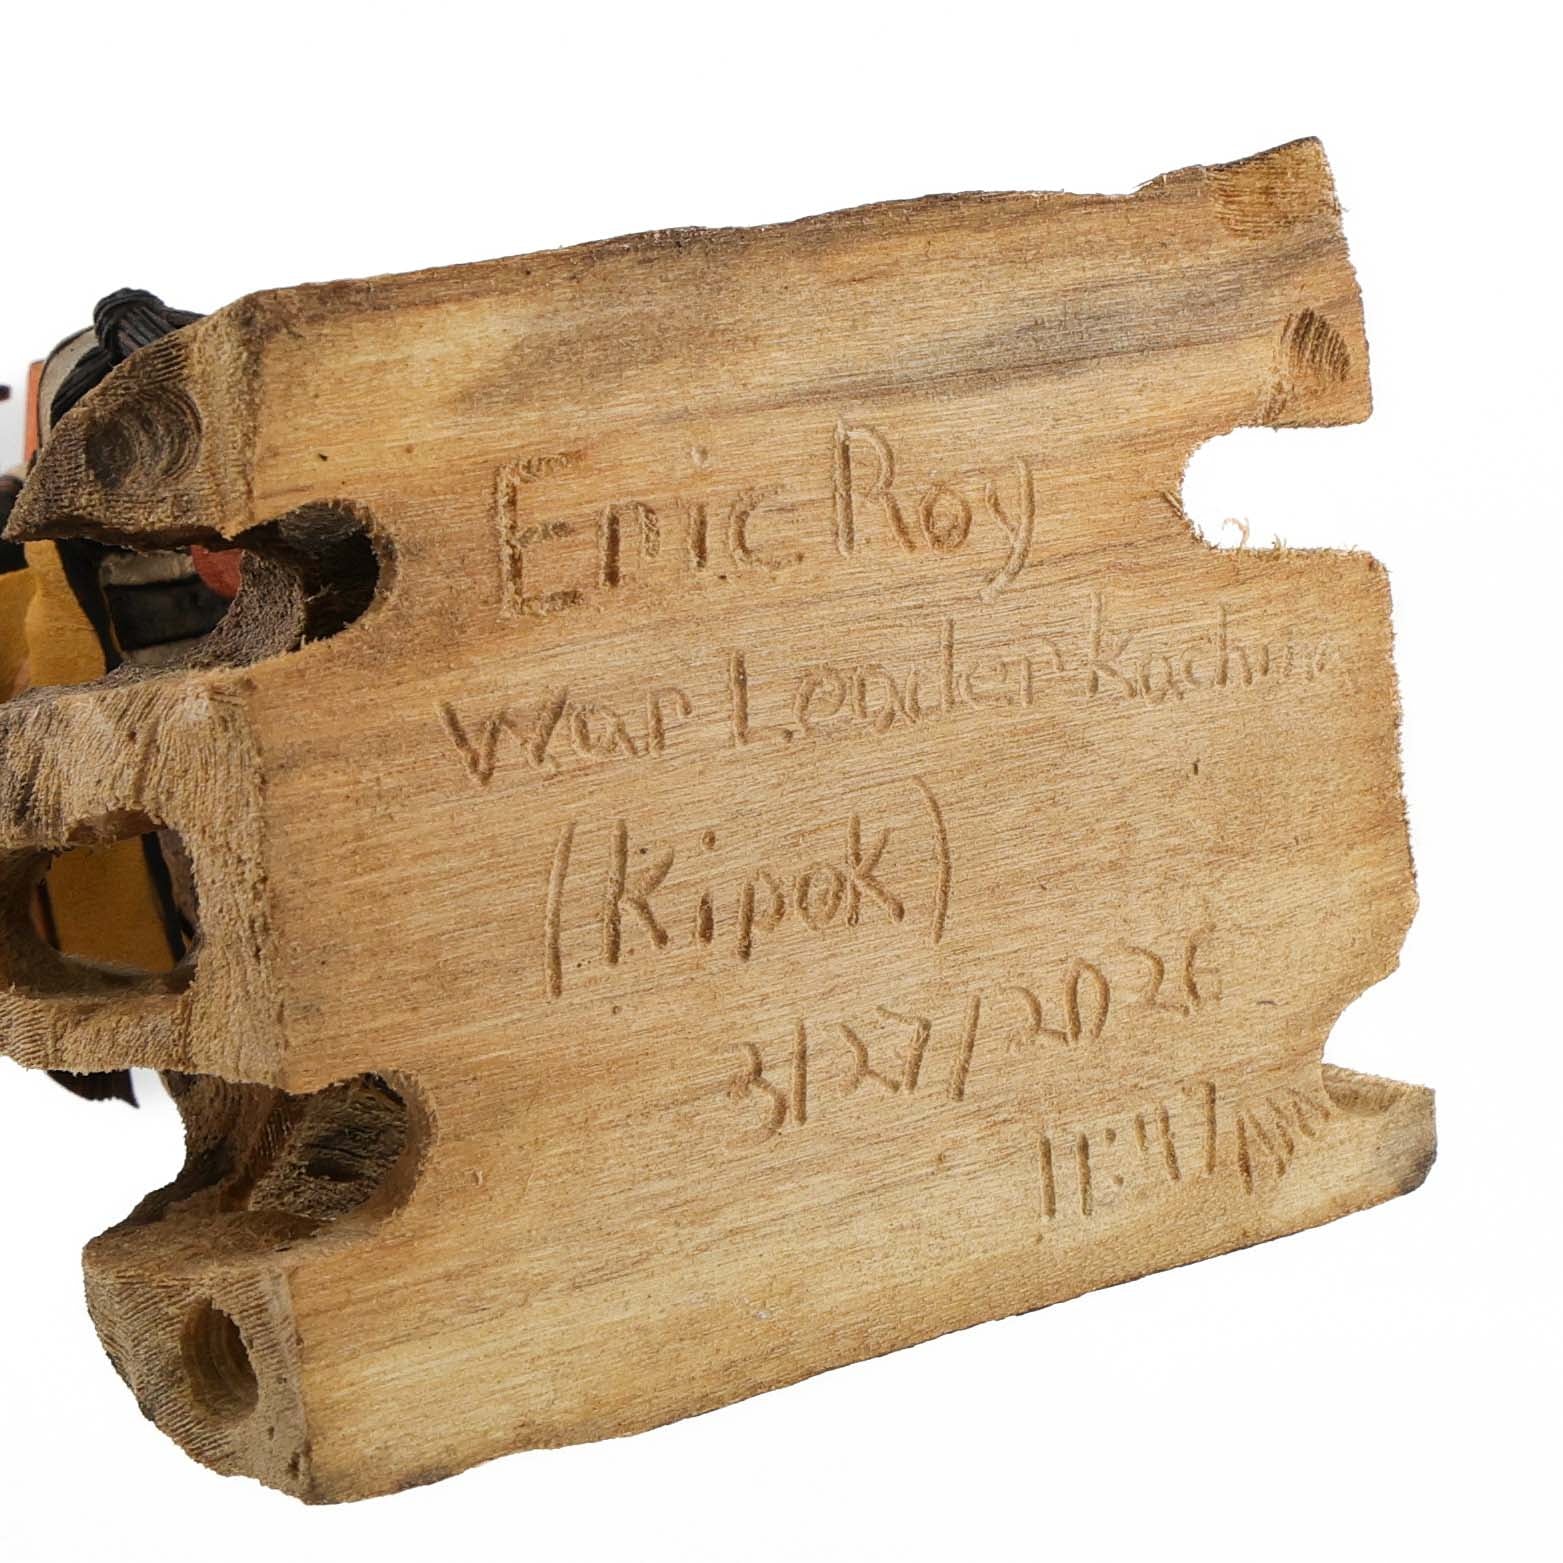 Eric Roy
War Leader Kachina
(Kipok)
3/27/2026
11:47pm